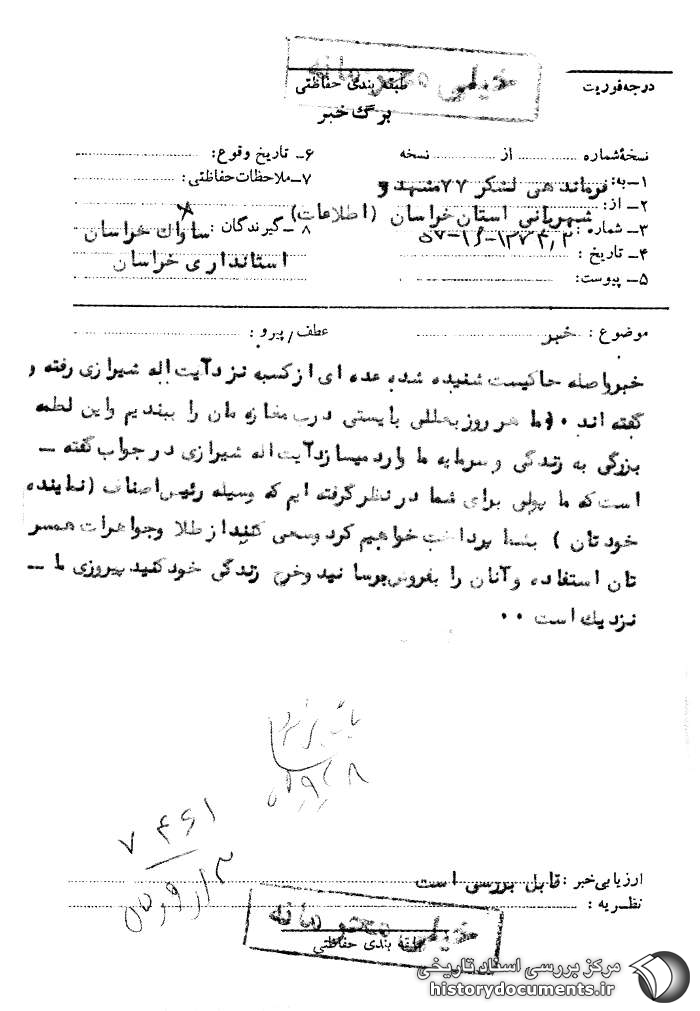 خیلی محرمانه
طبقه بندی حفاظتی
درجه فوریت
برگ خبر
نسخهٔ شماره ........ از ........ نسخه
۱ـ به: فرماندهی لشکر ۷۷ مشهد و
۲ـ از: شهربانی استان خراسان (اطلاعات)
۳ـ شماره :
۴ـ تاریخ :
۵ـ پیوست:
۶ـ تاریخ وقوع:
۷ـ ملاحظات حفاظتی:
۸ ـ گیرندگان : ساواک خراسان
استانداری خراسان
موضوع : خبر
عطف/پیرو :
خبرواصله حاکیست شنیده شده عده ای ازکسبه نزدآیت اله شیرازی رفته و
گفته اند ۰ ما هر روز بعللی بایستی درب مغازه مان را ببندیم واین لطمه
بزرگی به زندگی وسرمایه ما واردمیسازدآیت اله شیرازی درجواب گفته ـ
است که ما پولی برای شما درنظرگرفته ایم که وسیله رئیس اصناف (نماینده
خودتان ) بشما پرداخت خواهیم کرد وسعی کنید از طلا وجواهرات همسر
تان استفاده وآنان را بفروش برسانید وخرج زندگی خودکنید پیروزی ما ـ
نزدیك است ۰۰
۷۴۶۱
ارزیابی خبر : قابل بررسی است
نظریه :
خیلی محرمانه
طبقه بندی حفاظتی
مرکز بررسی اسناد تاریخی
historydocuments.ir